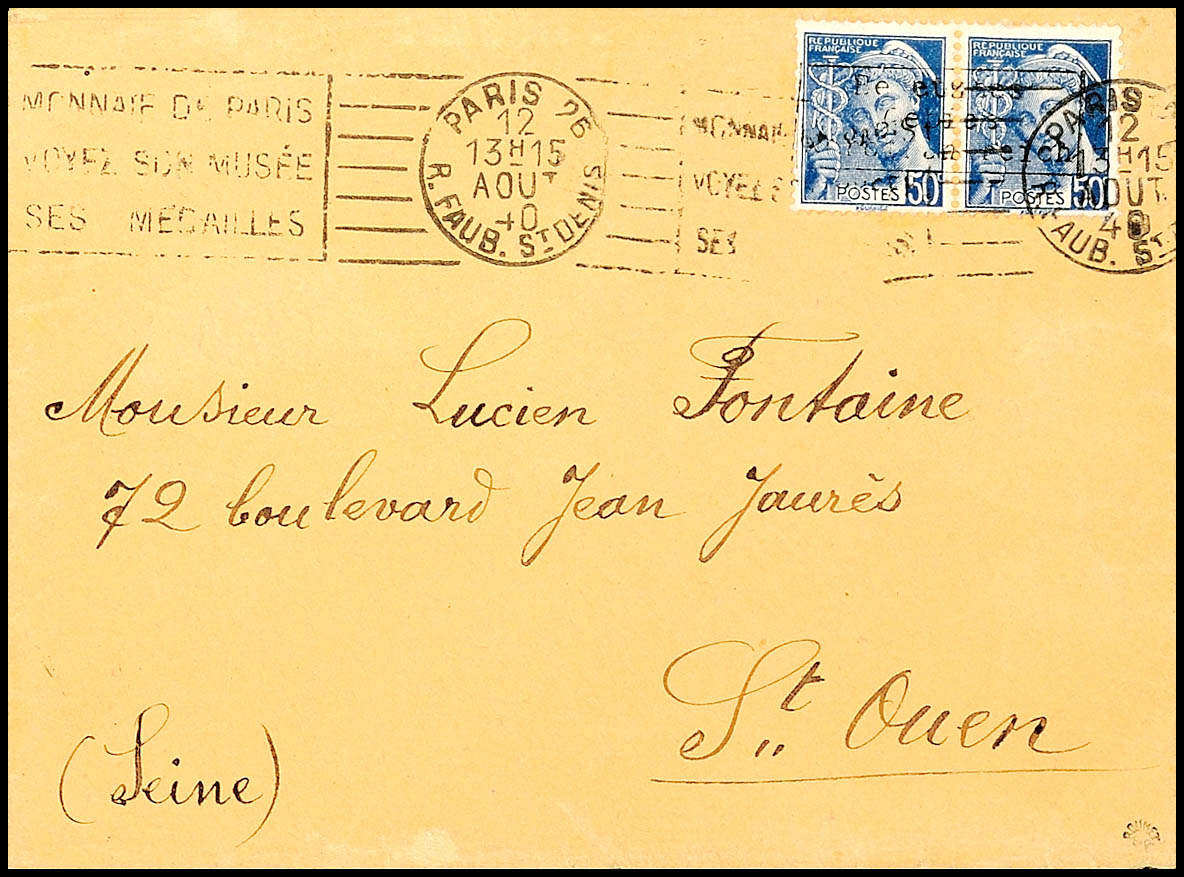 MONNAIE DE PARIS
VOYEZ SON MUSÉE
SES MÉDAILLES
PARIS 26
12
13H15
AOUT
40
R. FAUB. ST DENIS
MONNAI
VOYEZ
SES
RÉPUBLIQUE
FRANÇAISE
POSTES 50
RÉPUBLIQUE
FRANÇAISE
POSTES 50
PARIS
12
13H15
AOUT
40
FAUB. ST
Monsieur Lucien Fontaine
72 boulevard Jean Jaurès
St Ouen
(Seine)
ROUMET